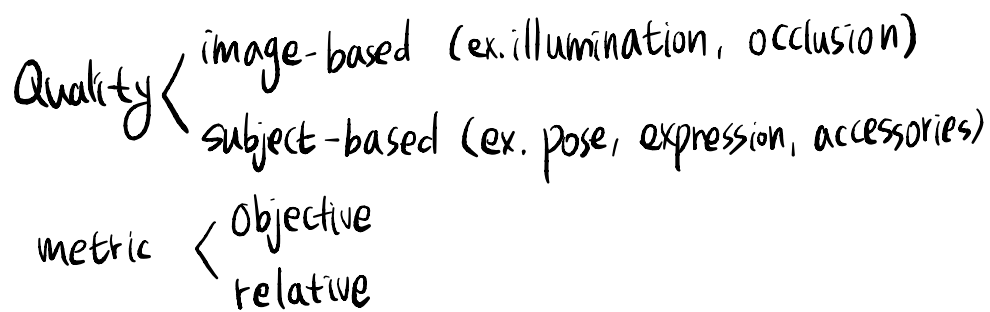 Quality < image-based (ex. illumination, occlusion)
subject-based (ex. pose, expression, accessories)
metric < objective
relative